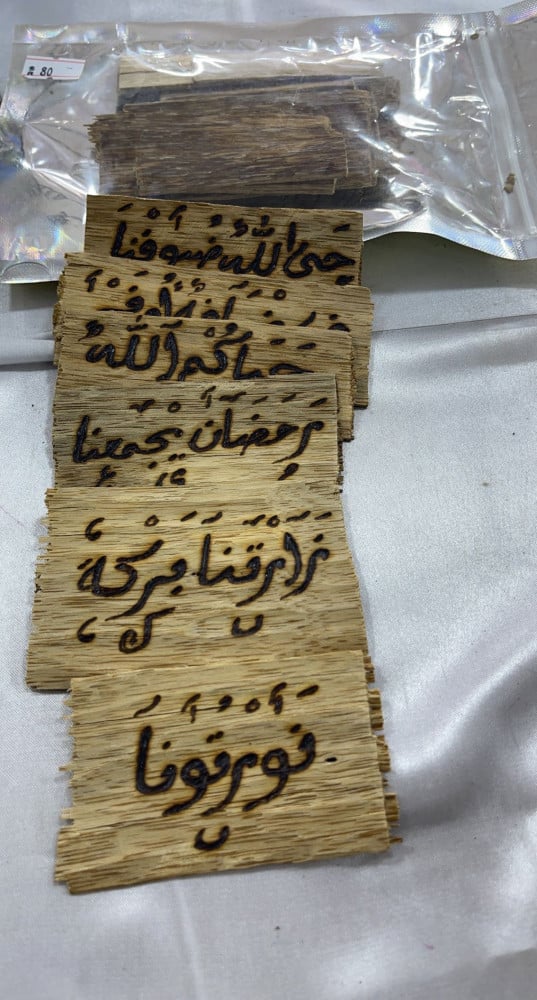 80
حى الله ضيوفنا
حياكم الله
رمضان يجمعنا
زارتنا بركة
نورتونا